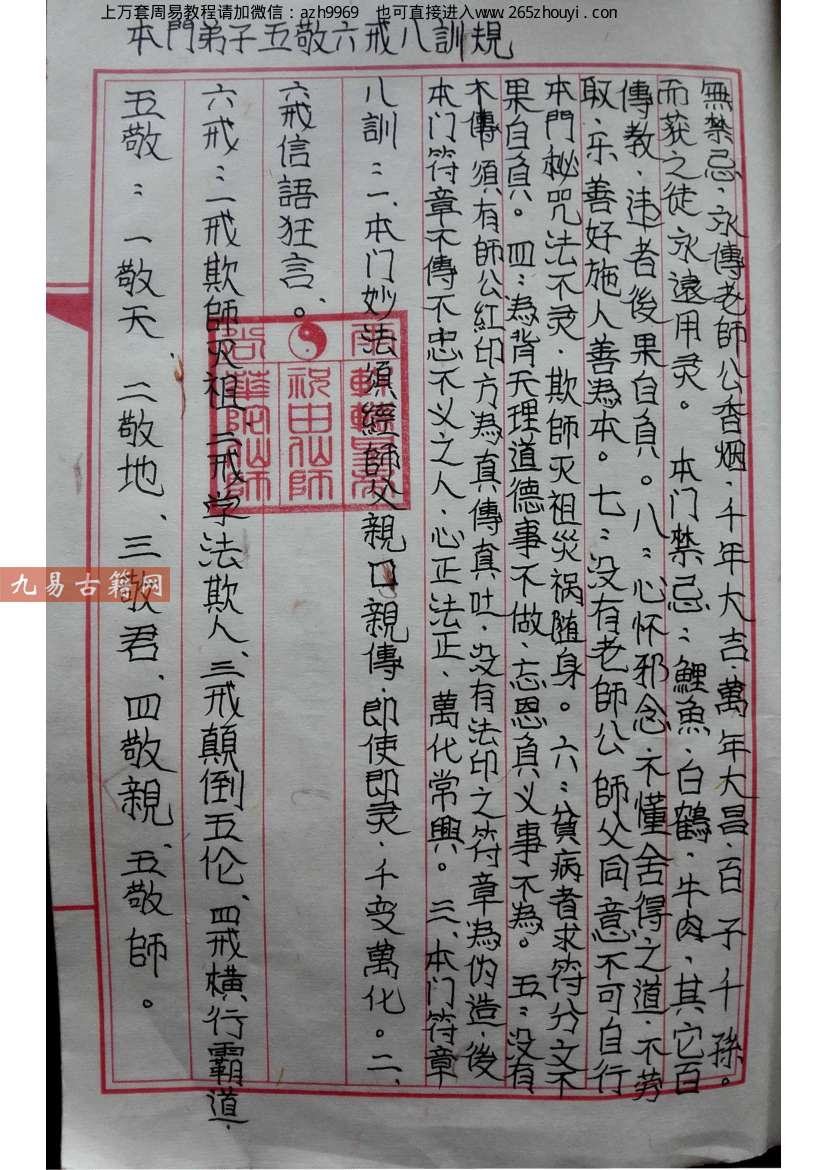 上万套周易教程请加微信：azh9969 也可直接进入www.265zhouyi.com
本門弟子五敬六戒八訓規
五敬：一敬天、二敬地、三敬君、四敬親、五敬師。
六戒：一戒欺師灭祖、二戒学法欺人、三戒顛倒五伦、四戒横行霸道、
六戒信語狂言。
八訓：一、本门妙法須經師父親口親傳、即使即灵、千变萬化。二、
本门符章不傳不忠不义之人、心正法正、萬代常興。三、本门符章
不傳、須有師公紅印方為真傳真吐、没有法印之符章為伪造、後
果自負。四：為背天理道德事不做、忘恩負义事不為。五：没有
本門秘咒法不灵、欺師灭祖災祸随身。六：貧病者求符分文不
取、乐善好施人善為本。七：没有老師公師父同意不可自行
傳教、违者後果自負。八：心怀邪念、不懂舍得之道、不劳
而获之徒永遠用灵。本门禁忌：鯉魚、白鶴、牛肉、其它百
無禁忌、永傳老師公香烟、千年大吉、萬年大昌、百子千孫。
祝由仙師
華陀仙師
九易古籍网